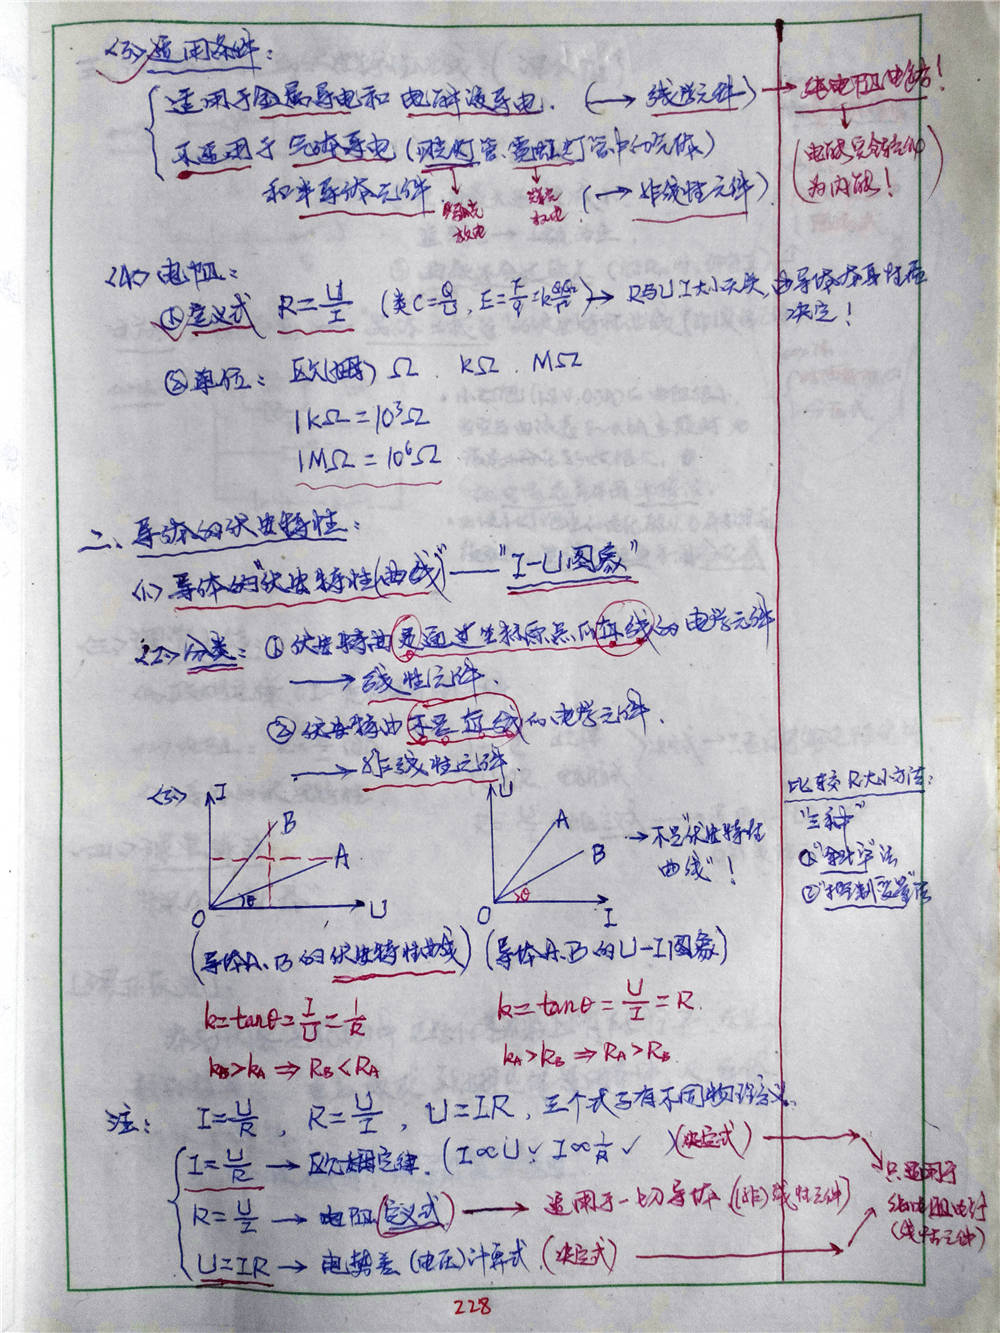 <3>适用条件:
适用于金属导电和电解液导电. (→线性元件)→纯电阻电路!
不适用于气体导电(日光灯管、霓虹灯管中的气体)
(电能完全转化为内能!)
和半导体元件 (→非线性元件).
<4>电阻:
①定义式 R=U/I (类C=Q/U, E=F/q=kQq/r²)→R与U I大小无关,由导体本身性质决定!
②单位: 欧(姆) Ω . kΩ . MΩ
1kΩ=10³Ω
1MΩ=10⁶Ω
二、导体的伏安特性:
<1>导体的"伏安特性(曲线)"——"I-U图象"
<2>分类: ①伏安特曲是通过坐标原点的直线的电学元件
→线性元件.
②伏安特曲不是直线的电学元件.
→非线性元件.
<3> I B A θ O U
U A B θ O I
→不是"伏安特性曲线"!
比较R大小方法:
"三种"
①"斜率"法
②"控制变量"法
(导体A、B的伏安特性曲线) (导体A、B的U-I图象)
k=tanθ=I/U=1/R
k=tanθ=U/I=R.
kB>kA⇒RB<RA
kA>kB⇒RA>RB.
注: I=U/R, R=U/I, U=IR, 三个式子有不同物理意义.
I=U/R→欧姆定律. (I∝U✓ I∝1/R✓)(决定式)
R=U/I→电阻(定义式)→适用于一切导体.[(非)线性元件]
U=IR→电势差(电压)计算式.(决定式)
只适用于
纯电阻电路
(线性元件)
228